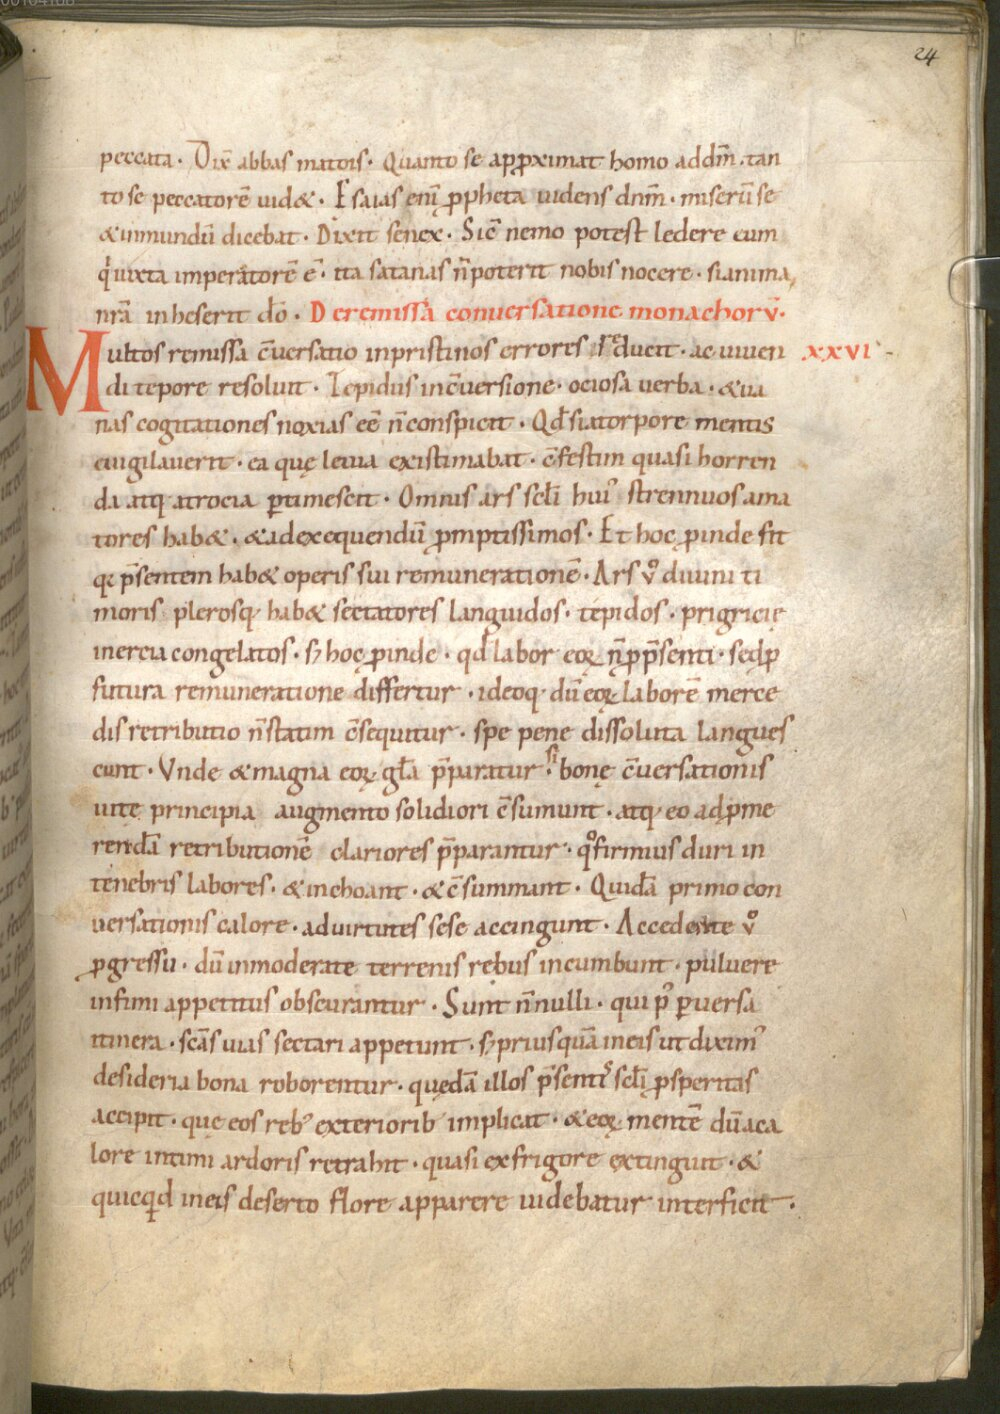 24
peccata · Dix̄ abbas matois · Quanto se apꝓximat homo addm̄ · tan
to se peccatorē uid& · Esaias eni ꝓpheta uidens dnm̄ · miserū se
& inmundū dicebat · Dixit senex · Sic̄ nemo potest ledere eum
qͥ iuxta imperatorē ē · ita satanas n̄ poterit nobis nocere · si anima
nr̄a inheserit dō · De remissa conuersatione monachorū ·
Multos remissa c̄uersatio inpristinos errores reducit · ac uiuen XXVI
di tepore resoluit · Tepidus in c̄uersione · ociosa uerba · & ua
nas cogitationes noxias eē n̄ conspicit · Qd̄ si a torpore mentis
euigilauerit · ea quę leuia existimabat · c̄festim quasi horren
da atq; atrocia ꝑtimescit · Omnis ars scl̄i hui᾿ strennuos ama
tores hab& · & ad exequendū ꝓmptissimos · Et hoc ꝓinde fit
qꝛ p̄sentem hab& operis sui remunerationē · Ars ūͦ diuini ti
moris plerosq; hab& sectatores languidos · tepidos · prigricię
inercia congelatos · sꝫ hoc ꝓinde · qd̄ labor eoꝝ n̄ ꝓ p̄senti · sed ꝓ
futura remuneratione differtur · ideoq; dū eoꝝ laborē merce
dis retributio n̄ statim c̄sequitur · spe pene dissoluta langues
cunt · Vnde & magna eoꝝ gl̄a p̄paratur · si bonę c̄uersationis
uitę principia augmento solidiori c̄sumunt · atq; eo ad ꝓme
rendā retributionē clariores p̄parantur · qͦ firmius duri in
teneris labores · & inchoant · & c̄summant · Quidā primo con
uersationis calore · ad uirtutes sese accingunt · Accedente ūͦ
ꝓgressu · dū inmoderate terrenis rebus incumbunt · puluere
infimi appetitus obscurantur · Sunt n̄nulli · qui p᾿ ꝑuersa
itinera · scās uias sectari appetunt · sꝫ priusquā in eis ut dixim᾿
desideria bona roborentur · quędā illos p̄sentis scl̄i ꝓsperitas
accipit · quę eos reb᾿ exteriorib᾿ implicat · & eoꝝ mentē dū a ca
lore intimi ardoris retrahit · quasi ex frigore extinguit · &
quicqͥd in eis deserto flore apparere uidebatur interficit ·